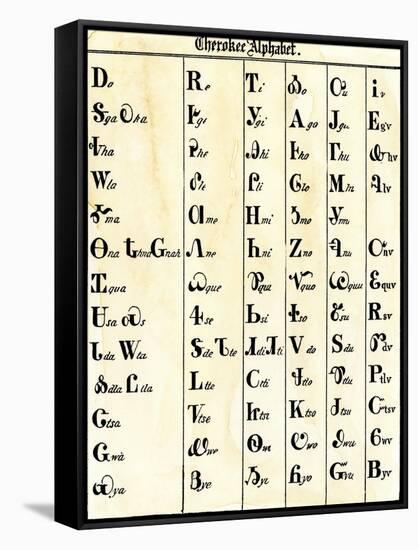 Cherokee Alphabet.
Ꭰa Ꭱe Ꭲi Ꭳo Ꭴu Ꭵv
Ꭶga Ꭷka Ꭸge Ꭹgi Ꭺgo Ꭻgu Ꭼgv
Ꭽha Ꭾhe Ꭿhi Ꮀho Ꮁhu Ꮂhv
Ꮃla Ꮄle Ꮅli Ꮆlo Ꮇlu Ꮈlv
Ꮉma Ꮊme Ꮋmi Ꮌmo Ꮍmu
Ꮎna Ꮏhna Ꮐnah Ꮑne Ꮒni Ꮓno Ꮔnu Ꮕnv
Ꮖqua Ꮗque Ꮘqui Ꮙquo Ꮚquu Ꮛquv
Ꮜsa Ꮝs Ꮞse Ꮟsi Ꮠso Ꮡsu Ꮢsv
Ꮣda Ꮤta Ꮥde Ꮦte Ꮧdi Ꮨti Ꮩdo Ꮪdu Ꮫdv
Ꮬdla Ꮭtla Ꮮtle Ꮯtli Ꮰtlo Ꮱtlu Ꮲtlv
Ꮳtsa Ꮴtse Ꮵtsi Ꮶtso Ꮷtsu Ꮸtsv
Ꮹwa Ꮺwe Ꮻwi Ꮼwo Ꮽwu Ꮾwv
Ꮿya Ᏸye Ᏹyi Ᏺyo Ᏻyu Ᏼyv